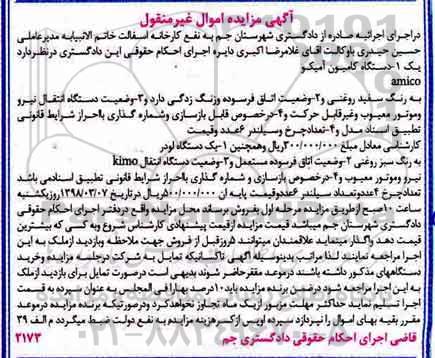 آگهی مزایده اموال غیرمنقول
دراجرای اجرائیه صادره از دادگستری شهرستان جم به نفع کارخانه اسفالت خاتم الانبیابه مدیرعاملی
حسین حیدری باوکالت اقای غلامرضا اکبری دایره اجرای احکام حقوقی این دادگستری درنظردارد
یک ۱-دستگاه کامیون آمیکو
amico
به رنگ سفید روغنی و۲-وضعیت اتاق فرسوده وزنگ زدگی دارد و۳-وضعیت دستگاه انتقال نیرو
وموتور معیوب وغیرقابل حرکت و۴-درخصوص قابل بازسازی وشماره گذاری بااحراز شرایط قانونی
تطبیق اسناد مدل و۴-تعدادچرخ وسیلندر ۶عدد وقیمت
کارشناسی معادل مبلغ ۳۰۰/۰۰۰/۰۰۰ریال وهمچنین ۱-یک دستگاه لودر
kimo به رنگ سبز روغنی ۲-وضعیت اتاق فرسوده مستعمل و۳-وضعیت دستگاه انتقال
نیرو وموتور معیوب و۴-درخصوص بازسازی و شماره گذاری بااحراز شرایط قانونی تطبیق اسنادمی باشد
تعدادچرخ ۴عددوتعداد سیلندر ۶عددوقیمت پایه ان ۵۰۰/۰۰۰/۰۰۰ریال درتاریخ ۱۳۹۸/۰۳/۰۷روزیکشنبه
ساعت ۱۰صبح ازطریق مزایده مرحله اول بفروش برسد محل مزایده واقع دردفتر اجرای احکام حقوقی
دادگستری شهرستان جم میباشد قیمت مزایده ازقیمت پیشنهادی کارشناس شروع وبه کسی که بیشترین
قیمت دهد واگذار مینماید علاقمندان میتوانند ۵روزقبل از فروش جهت ملاحظه وبازدید ازملک به این
اجرا مراجعه نمایند لذا مراتب بدینوسیله اگهی تاکسانیکه تمایل به شرکت درجلسه مزایده وخرید
دستگاههای مذکور داشته باشند درموعد مقرر حاضر شوند بدیهی است درصورت تمایل برای بازدید ازملک
به این اجرا مراجعه شود درضمن برنده مزایده باید ۱۰درصد بهارا فی المجلس به عنوان سپرده به قسمت
اجرا تسلیم نماید حداکثر مهلت مزبور از یک ماه تجاوز نخواهدکرد ودرصورتیکه برنده مزایده درموعد
مقرر بقیه بهای اموال را نپردازد سپرده اوپس از کسر هزینه مزایده به نفع دولت ضبط میگردد م الف ۳۹
قاضی اجرای احکام حقوقی دادگستری جم ۲۱۷۳